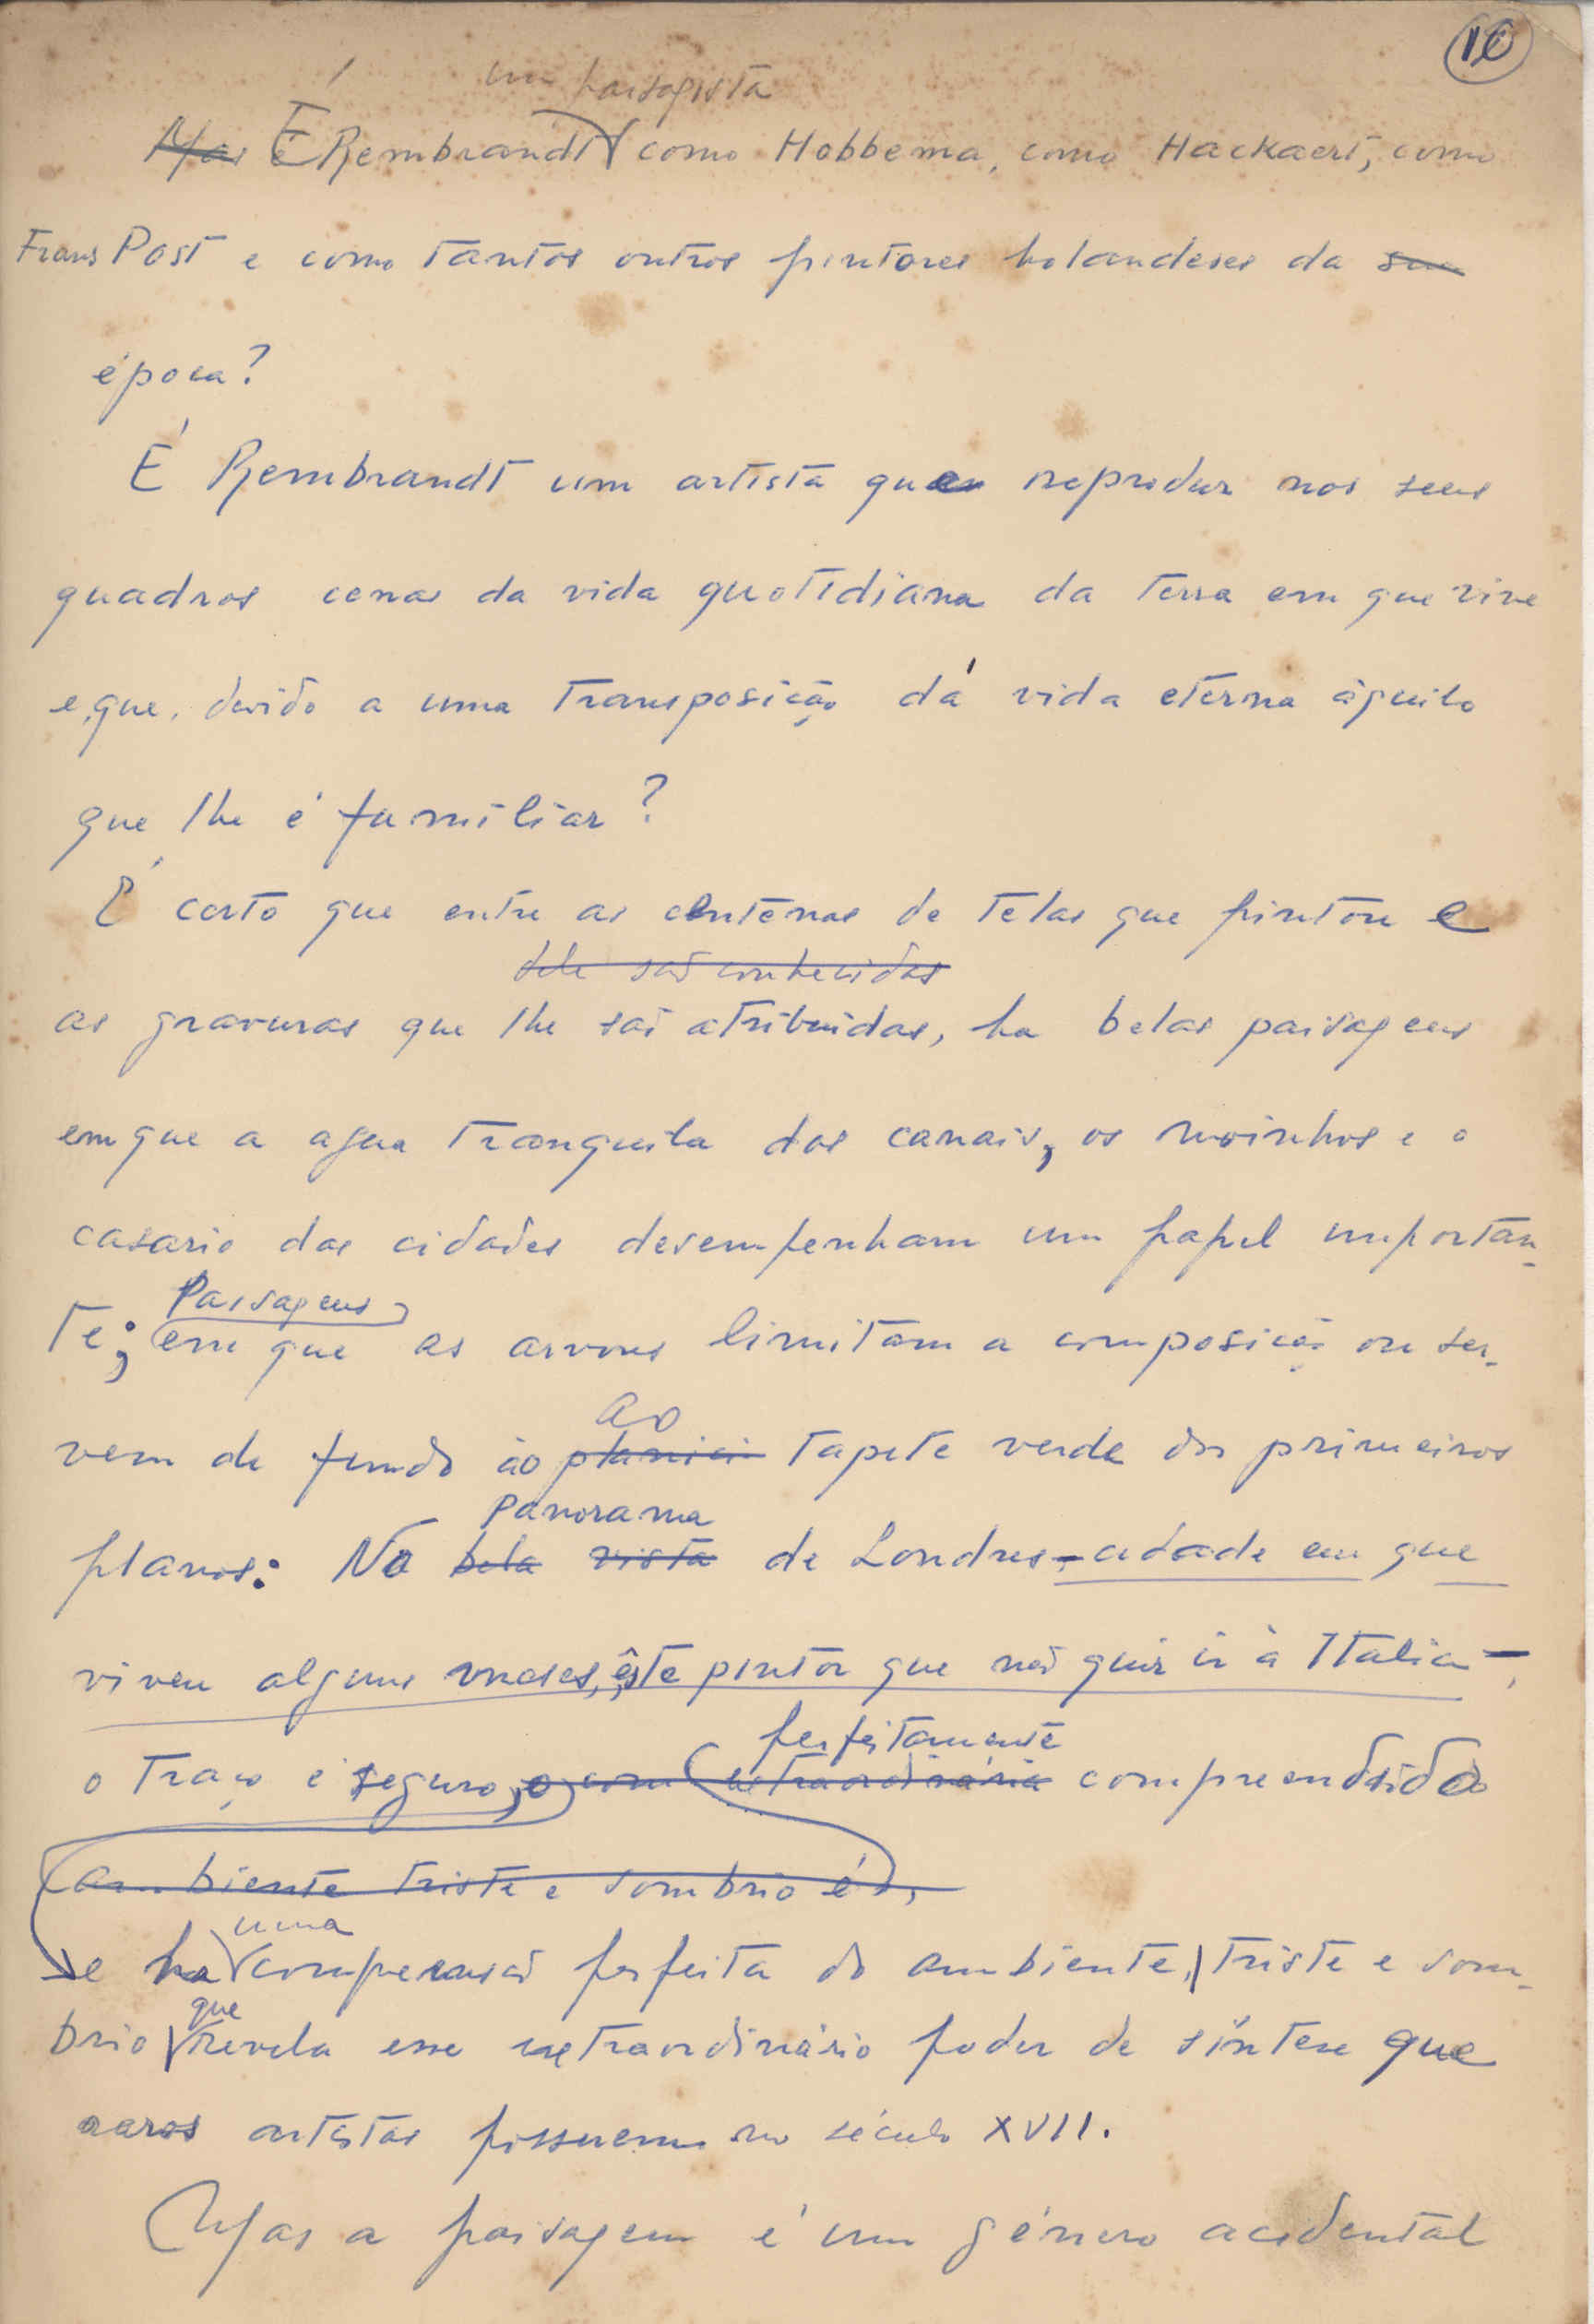 10
um paisagista
Mas É Rembrandt como Hobbema, como Hackaert, como
Frans Post e como tantos outros pintores holandeses da sua
época?
É Rembrandt um artista que reproduz nos seus
quadros cenas da vida quotidiana da terra em que vive
e, que, devido a uma transposição dá vida eterna àquilo
que lhe é familiar?
É certo que entre as centenas de telas que pintou e
dele são conhecidas
as gravuras que lhe são atribuidas, ha belas paisagens
em que a agua tranquila dos canais, os moinhos e o
casario das cidades desempenham um papel importan-
Paisagens
te; em que as arvores limitam a composição ou ser-
ao
vem de fundo ao planicie tapete verde dos primeiros
Panorama
planos: No bela vista de Londres - cidade em que
viveu alguns meses, êste pintor que não quis ir à Italia -,
perfeitamente
o traço é seguro, o com extraordinária compreendido
ambiente triste e sombrio é,
uma
e ha compreensão perfeita do ambiente, triste e som-
que
brio revela esse extraordinário poder de síntese que
raros artistas possuem no século XVII.
Mas a paisagem é um género acidental